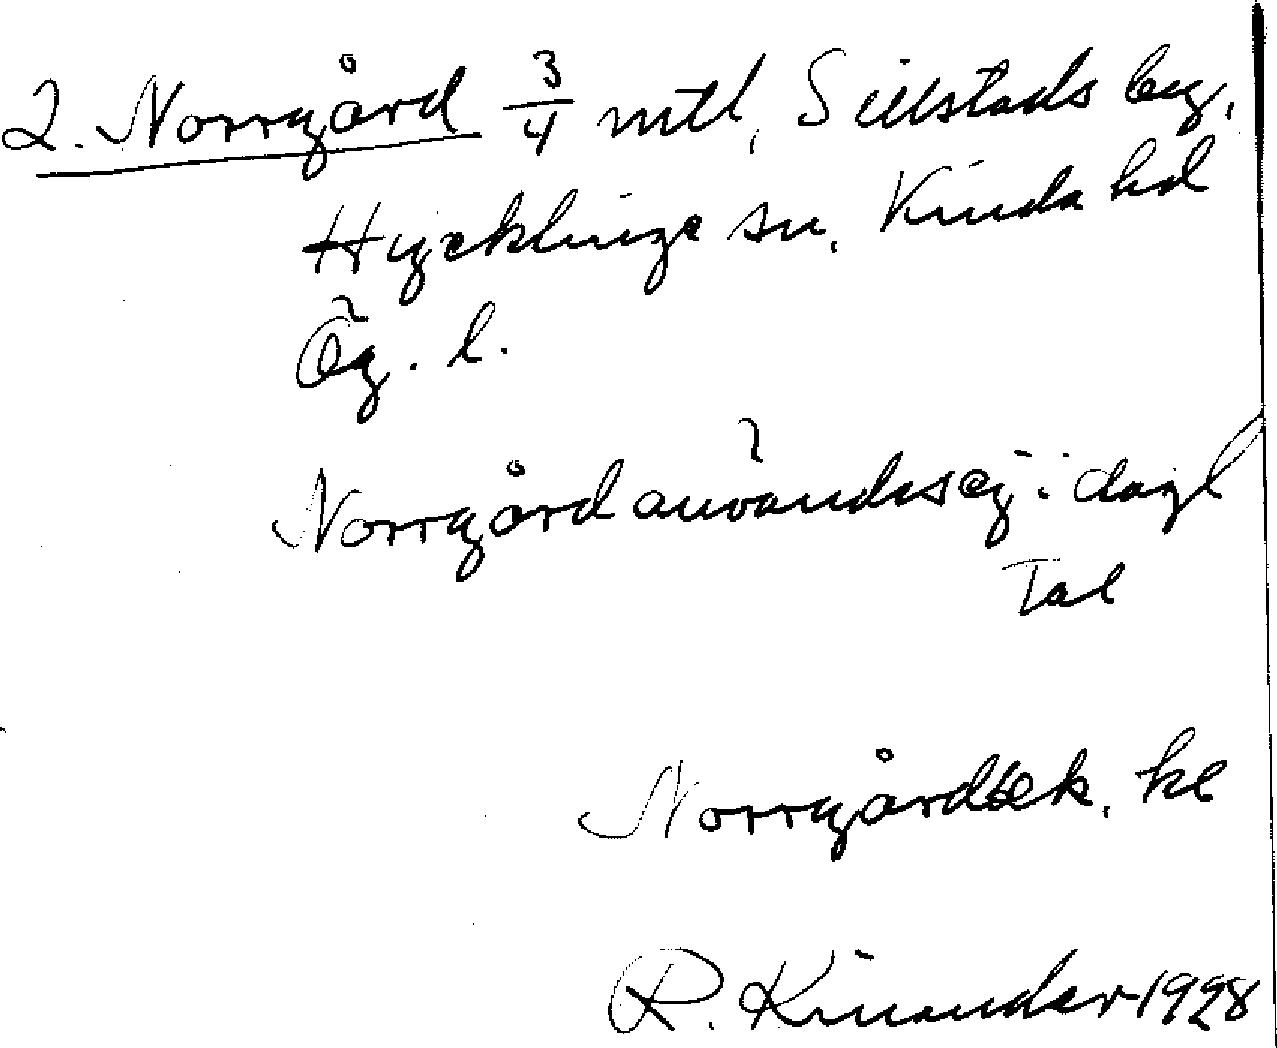 2. Norrgård 3/4 mtl, Sillstads by,
Hycklinge sn, Kinda hd
Ög. l.
Norrgård användes ej i dagl
Tal
Norrgård ek. kl
R. Kinander 1928